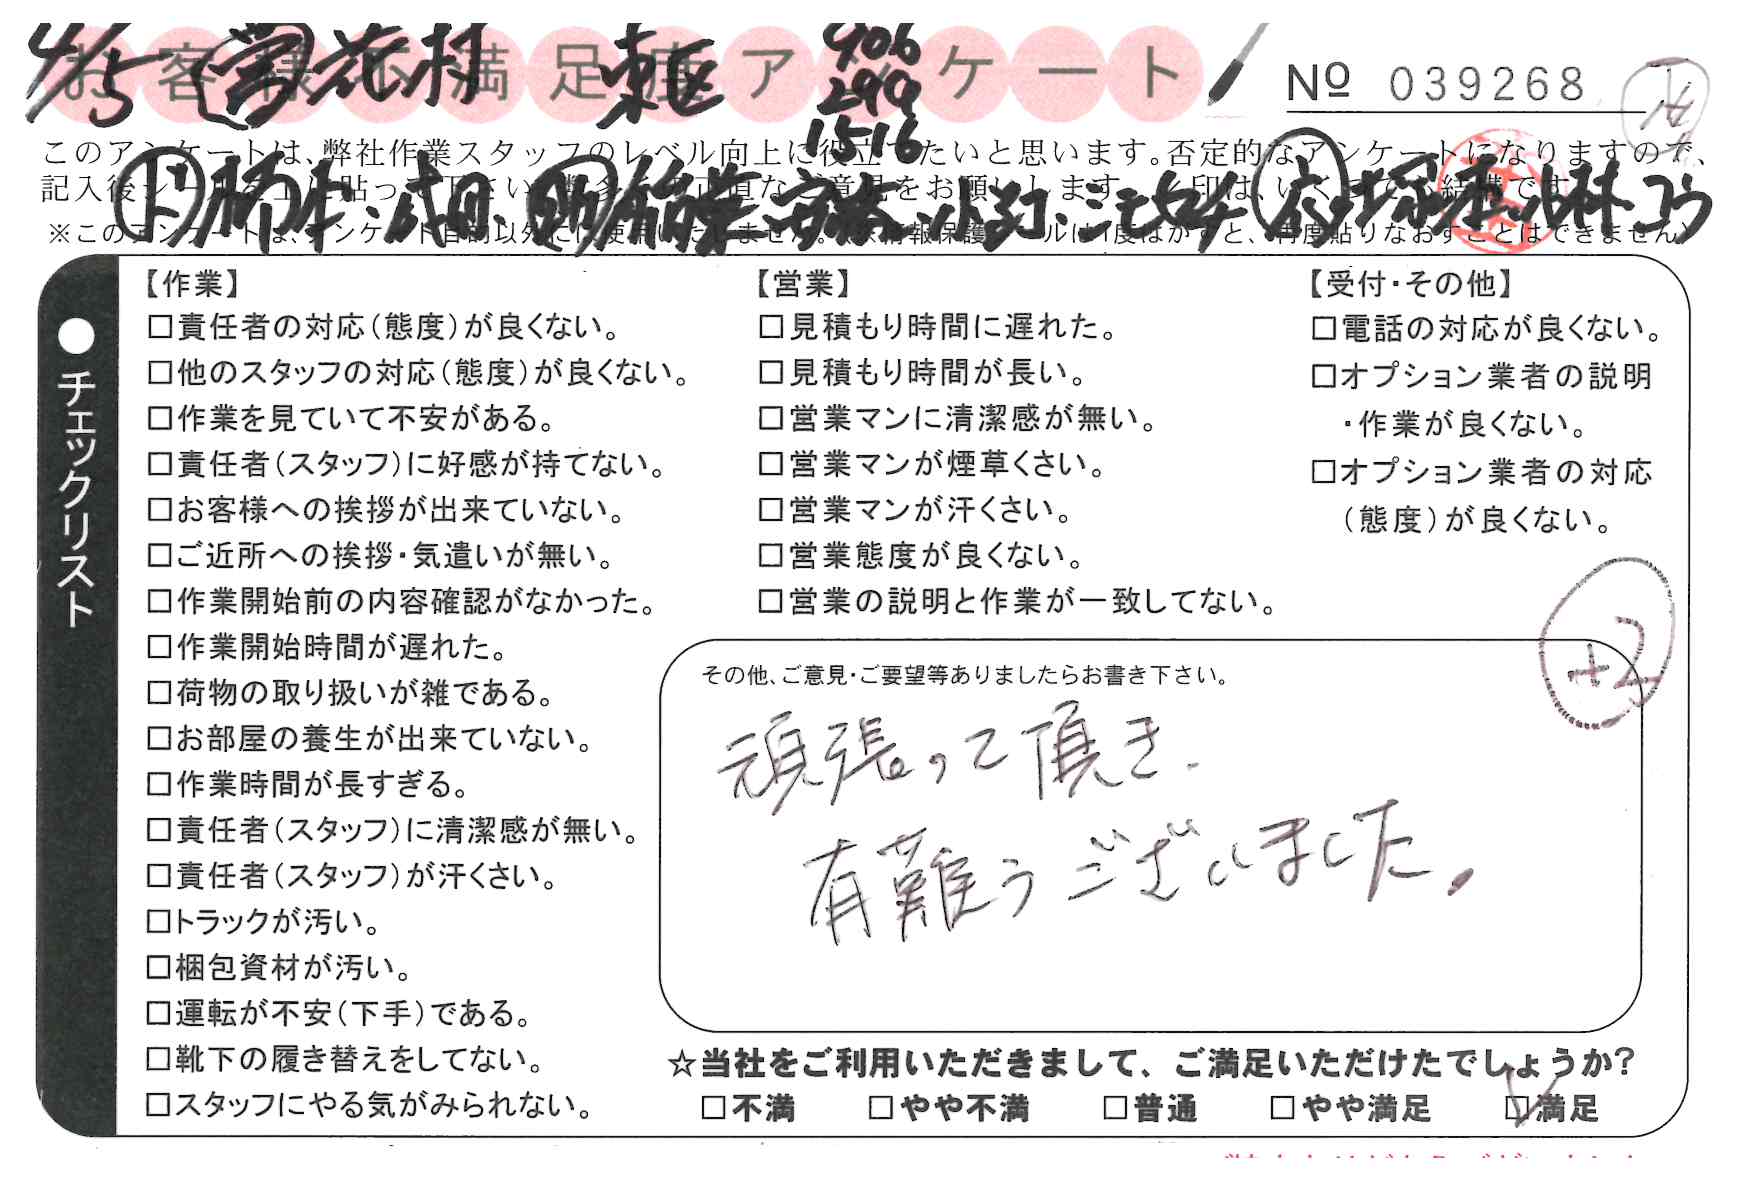 お客様不満足度アンケート
4/5 営 花村 東区 406
299
1516
Nº 039268
このアンケートは、弊社作業スタッフのレベル向上に役立てたいと思います。否定的なアンケートになりますので、
記入後シールを上に貼って下さい。数多くの正直なご意見をお願いします。レ印は、いくつでも結構です。
※このアンケートは、アンケート目的以外には使用いたしません。(※情報保護シールは1度はがすと、再度貼りなおすことはできません)
●チェックリスト
【作業】
□責任者の対応(態度)が良くない。
□他のスタッフの対応(態度)が良くない。
□作業を見ていて不安がある。
□責任者(スタッフ)に好感が持てない。
□お客様への挨拶が出来ていない。
□ご近所への挨拶・気遣いが無い。
□作業開始前の内容確認がなかった。
□作業開始時間が遅れた。
□荷物の取り扱いが雑である。
□お部屋の養生が出来ていない。
□作業時間が長すぎる。
□責任者(スタッフ)に清潔感が無い。
□責任者(スタッフ)が汗くさい。
□トラックが汚い。
□梱包資材が汚い。
□運転が不安(下手)である。
□靴下の履き替えをしてない。
□スタッフにやる気がみられない。
【営業】
□見積もり時間に遅れた。
□見積もり時間が長い。
□営業マンに清潔感が無い。
□営業マンが煙草くさい。
□営業マンが汗くさい。
□営業態度が良くない。
□営業の説明と作業が一致してない。
【受付・その他】
□電話の対応が良くない。
□オプション業者の説明
・作業が良くない。
□オプション業者の対応
(態度)が良くない。
+2
その他、ご意見・ご要望等ありましたらお書き下さい。
頑張って頂き、
有難うございました。
☆当社をご利用いただきまして、ご満足いただけたでしょうか?
□不満 □やや不満 □普通 □やや満足 ☑満足